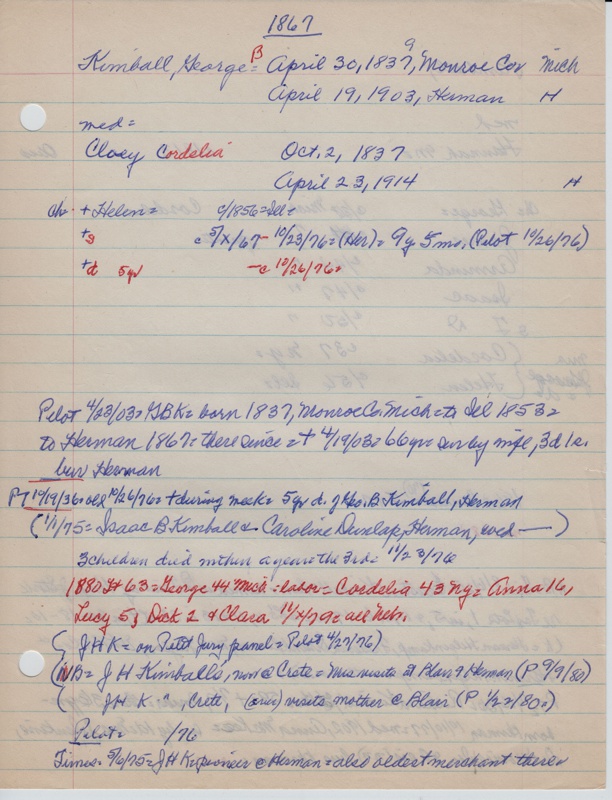 1867
Kimball, George B = April 30, 1837, 9, Monroe Co, Mich
April 19, 1903, Herman H
med=
Cloey Cordelia Oct. 2, 1837
April 23, 1914 H
ch. + Helen = c/1856= Ill=
+s c 5/X/67 - 10/23/76= (Her)= 9y 5 mo. (Pilot 10/26/76)
+d 5yr -c 10/26/76=
Pilot 4/23/03= GBK= born 1837, Monroe Co. Mich= to Ill 1853=
to Herman 1867= there since= + 4/19/03= 66yr= sur by wife, 3d 1s.
bur Herman
P 10/26/76= + during week= 5yr d. of Geo. B Kimball, Herman
(1/1/75= Isaac B Kimball & Caroline Dunlap, Herman, wed —)
3 children died within a year= the 3rd= 11/23/76
1880 H 63= George 44 Mich= labor= Cordelia 43 NY= Anna 16,
Lucy 5, Dick 2 & Clara 11/X/79= all Neb.
( J H K= on Petit Jury panel= Pilot 4/27/76)
( NB= J H Kimballs, now @ Crete= Mrs visits at Blair & Herman (P 9/9/80)
( J H K= Crete, visits mother @ Blair (P 1/22/80=)
Pilot= 1/76
Times= 5/6/75= J H K= pioneer @ Herman= also oldest merchant there